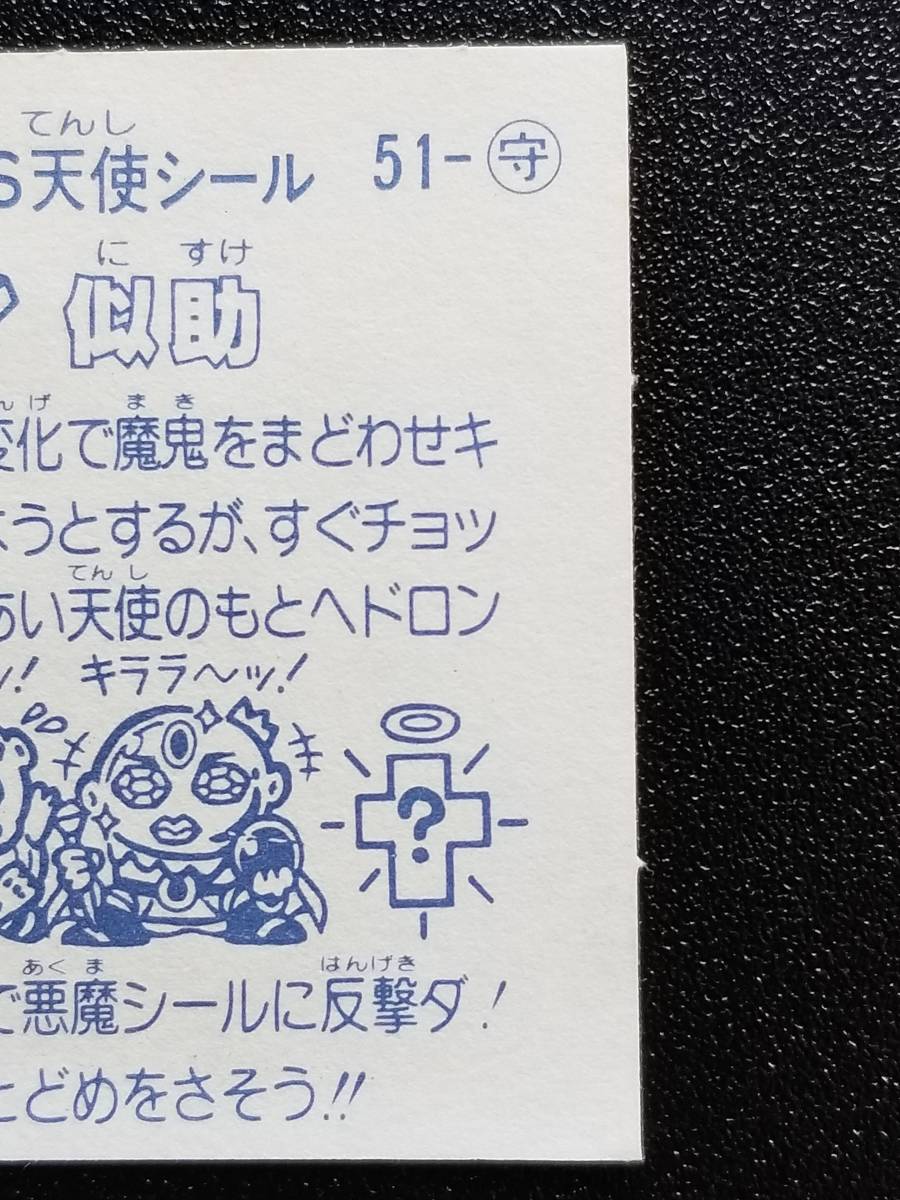 てんし
S天使シール 51-守
に すけ
似助
んげ まき
変化で魔鬼をまどわせキ
ようとするが、すぐチョッ
てんし
あい天使のもとへドロン
ッ! キララ〜ッ!
?
あくま はんげき
で悪魔シールに反撃ダ!
とどめをさそう!!